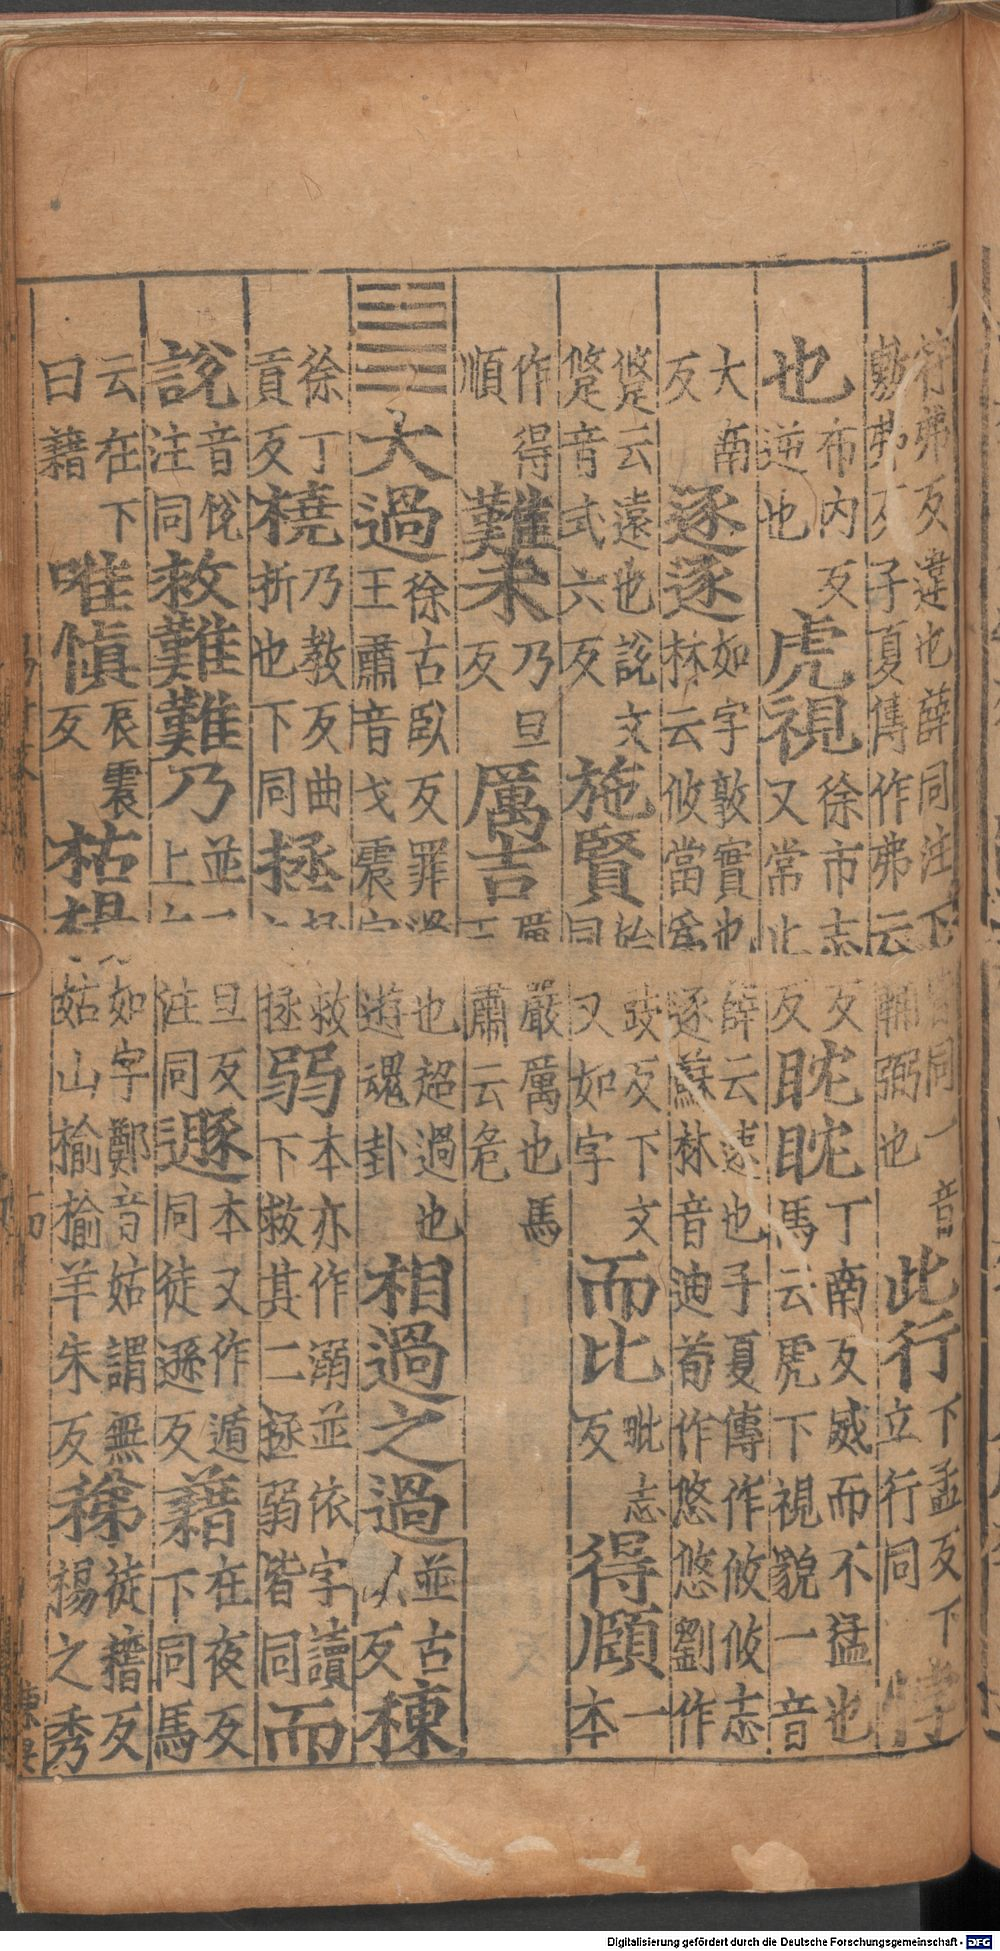 符弗反違也薛同注下皆同一音敷弗反子夏傳作弗云輔弼也此行下孟反下立行同悖
也布內反逆也虎視徐市志反又常止反眈眈丁南反威而不猛也馬云虎下視貌一音
大南反逐逐如字敦實也薛云速也子夏傳作攸攸志林云攸當為逐蘇林音迪荀作悠悠劉作
跾云遠也說文跾音式六反施賢始豉反下文同又如字而比毗志反得頤一本
作得順難未乃旦反厲吉厲嚴厲也馬王肅云危
䷛大過徐古臥反罪過也超過也王肅音戈震宮遊魂卦相過之過並古臥反棟
徐丁貢反橈乃教反曲折也下同拯拯救之拯弱本亦作溺並依字讀下救其二拯弱皆同而
說音悅注同救難難乃並乃旦反上六注同遯本又作遁同徒遜反藉在夜反下同馬
云在下曰藉唯慎辰震反枯楊如字鄭音姑謂無姑山榆榆羊朱反稊徒稽反楊之秀
Digitalisierung gefördert durch die Deutsche Forschungsgemeinschaft - DFG